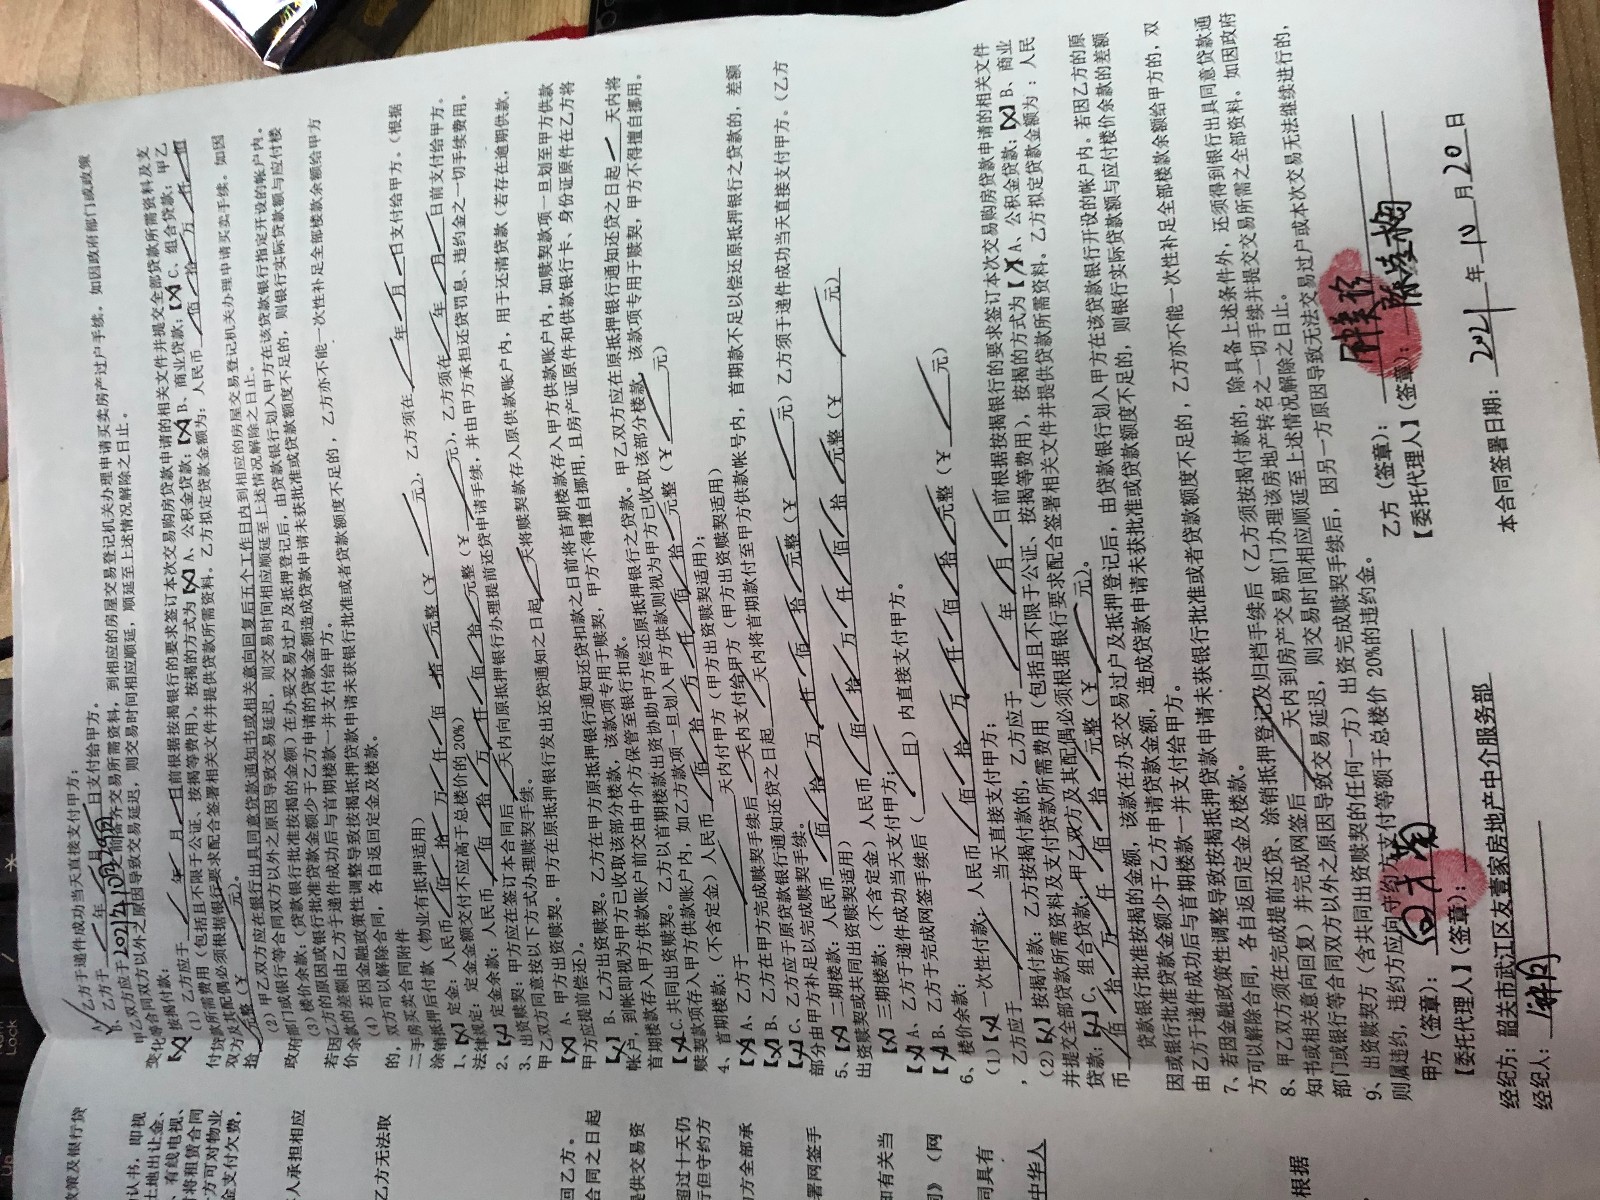 A、乙方于递件成功当天直接支付甲方；
B、乙方于 年 月 日支付给甲方。
甲乙双方应于2021年10月29日之前备齐交易所需资料，到相应的房屋交易登记机关办理申请买卖房产过户手续，如因政府部门或政策
变化等合同双方以外之原因导致交易延迟，则交易时间相应顺延，顺延至上述情况解除之日止。
【X】按揭付款：
（1）乙方应于 年 月 日前根据按揭银行的要求签订本次交易购房贷款申请的相关文件并提交全部贷款所需资料及支
付贷款所需费用（包括且不限于公证、按揭等费用）。按揭的方式为【X】A、公积金贷款；【X】B、商业贷款；【X】C、组合贷款；甲乙
双方及其配偶必须根据银行要求配合签署相关文件并提供贷款所需资料。乙方拟定贷款金额为：人民币 佰 拾 万 仟 佰
拾 元整（￥ 元）。
（2）甲乙双方应在银行出具同意贷款通知书或相关意向回复后五个工作日内到相应的房屋交易登记机关办理申请买卖手续。如因
政府部门或银行等合同双方以外之原因导致交易延迟，则交易时间相应顺延至上述情况解除之日止。
（3）楼价余款：（贷款银行批准按揭的金额）在办妥交易过户及抵押登记后，由贷款银行划入甲方在该贷款银行指定开设的帐户内。
若因乙方的原因或银行批准贷款金额少于乙方申请的贷款金额造成贷款申请未获批准或贷款额度不足的，则银行实际贷款额与应付楼
价余款的差额由乙方于递件成功后与首期楼款一并支付给甲方。
（4）若因金融政策性调整导致按揭抵押贷款申请未获银行批准或者贷款额度不足的，乙方亦不能一次性补足全部楼款余额给甲方
的，双方可以解除合同，各自返回定金及楼款。
二手房买卖合同附件
涂销抵押后付款（物业有抵押适用）
1、【X】定金：人民币 佰 拾 万 仟 佰 拾 元整（￥ 元），乙方须在 年 月 日支付给甲方。（根据
法律规定：定金金额交付不应高于总楼价的20%）
2、【X】定金余款：人民币 佰 拾 万 仟 佰 拾 元整（￥ 元），乙方须在 年 月 日前支付给甲方。
3、出资赎契：甲方应在签订本合同后 天内向原抵押银行办理提前还贷申请手续，并由甲方承担还贷罚息、违约金之一切手续费用。
甲乙双方同意按以下方式办理赎契手续。
【X】A、甲方出资赎契。甲方在原抵押银行发出还贷通知之日起 天将赎契款存入原供款账户内，用于还清贷款（若存在逾期供款，
甲方应提前偿还）。
【X】B、乙方出资赎契。乙方在甲方原抵押银行通知还贷扣款之日前将首期楼款存入甲方供款账户内，如赎契款项一旦划至甲方供款
帐户，到账即视为甲方已收取该部分楼款，该款项专用于赎契，甲方不得擅自挪用，且房产证原件和供款银行卡、身份证原件在乙方将
首期楼款存入甲方供款账户前交由中介方保管至银行扣款。
【X】C、共同出资赎契。乙方以首期楼款出资协助甲方偿还原抵押银行之贷款。甲乙双方应在原抵押银行通知还贷之日起 天内将
赎契款项存入甲方供款账户内，如乙方款项一旦划入甲方供款账户则视为甲方已收取该部分楼款，该款项专用于赎契，甲方不得擅自挪用。
4、首期楼款：（不含定金）人民币 佰 拾 万 仟 佰 拾 元整（￥ 元）
【X】A、乙方于 天内付甲方（甲方出资赎契适用）；
【X】B、乙方在甲方完成赎契手续后 天内支付给甲方（甲方出资赎契适用）
【X】C、乙方应于原贷款银行通知还贷之日起 天内将首期楼款付至甲方供款帐号内，首期款不足以偿还原抵押银行之贷款的，差额
部分由甲方补足以完成赎契手续。
5、【X】二期楼款：人民币 佰 拾 万 仟 佰 拾 元整（￥ 元）乙方须于递件成功当天直接支付甲方。（乙方
出资赎契或共同出资赎契适用）
【X】三期楼款：（不含定金）人民币 佰 拾 万 仟 佰 拾 元整（￥ 元）
【X】A、乙方于递件成功当天支付甲方；
【X】B、乙方于完成网签手续后（ 日）内直接支付甲方。
6、楼价余款：人民币 佰 拾 万 仟 佰 拾 元整（￥ 元）
（1）【X】一次性付款：
，乙方应于 当天直接支付甲方；
（2）【X】按揭付款：乙方按揭付款的，乙方应于 年 月 日前根据按揭银行的要求签订本次交易购房贷款申请的相关文件
并提交全部贷款所需资料及支付贷款所需费用（包括且不限于公证、按揭等费用），按揭的方式为【X】A、公积金贷款；【X】B、商业
贷款；【X】C、组合贷款；甲乙双方及其配偶必须根据银行要求配合签署相关文件并提供贷款所需资料。乙方拟定贷款金额为：人民
币 佰 拾 万 仟 佰 拾 元整（￥ 元）。
贷款银行批准按揭的金额，该款在办妥交易过户及抵押登记后，由贷款银行划入甲方在该贷款银行开设的帐户内。若因乙方的原
因或银行批准贷款金额少于乙方申请贷款金额，造成贷款申请未获批准或贷款额度不足的，则银行实际贷款额与应付楼价余款的差额
由乙方于递件成功后与首期楼款一并支付给甲方。
7、若因金融政策性调整导致按揭抵押贷款申请未获银行批准或者贷款额度不足的，乙方亦不能一次性补足全部楼款余额给甲方的，双
方可以解除合同，各自返回定金及楼款。
8、甲乙双方须在完成提前还贷、涂销抵押登记及归档手续后（乙方须按揭付款的，除具备上述条件外，还须得到银行出具同意贷款通
知书或相关意向回复）并完成网签后 天内到房产交易部门办理该房地产转名之一切手续并提交交易所需之全部资料。如因政府
部门或银行等合同双方以外之原因导致交易延迟，则交易时间相应顺延至上述情况解除之日止。
9、出资赎契方（含共同出资赎契的任何一方）出资完成赎契手续后，因另一方原因导致无法交易过户或本次交易无法继续进行的，
则属违约，违约方应向守约方支付等额于总楼价20%的违约金。
甲方（签章）：
【委托代理人】（签章）：
乙方（签章）：
【委托代理人】（签章）：
经纪方：韶关市武江区友壹家房地产中介服务部
经纪人：
本合同签署日期：2021年10月20日
政策及银行贷
认书，即视
土地出让金、
、有线电视、
将租赁合同
方可对物业
金支付欠费，
人承担相应
乙方无法取
回乙方。
合同之日起
提供交易资
超过十天仍
行但守约方
方全部承
署网签手
和有关当
》（网
同具有
中华人
根据
Lock
Up